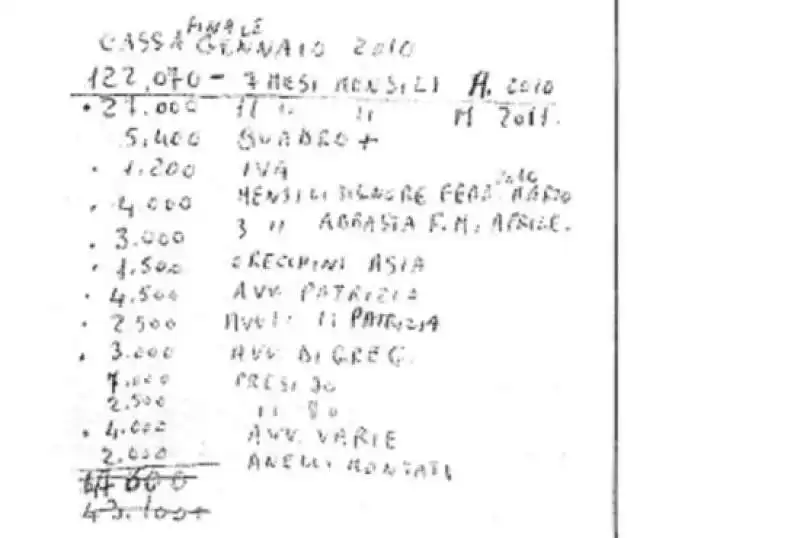 FINALE
CASSA GENNAIO 2010
122.070 - 7 MESI MENSILI A. 2010
• 27.000 11 " " M 2011.
5.400 QUADRO +
• 1.200 IVA
2010
• 4.000 MENSILI SIGNORE FEBB. MARZO
• 3.000 3 " ABBASTA F.M. APRILE.
• 1.500 ORECCHINI ASIA
• 4.500 AVV. PATRIZIA
• 2500 AVV. " PATRIZIA
• 3.000 AVV. DI GREG.
7.000 PRESI DO
2.500 "
• 4.000 AVV. VARIE
2.000 ANELLI MONTATI
43.100+